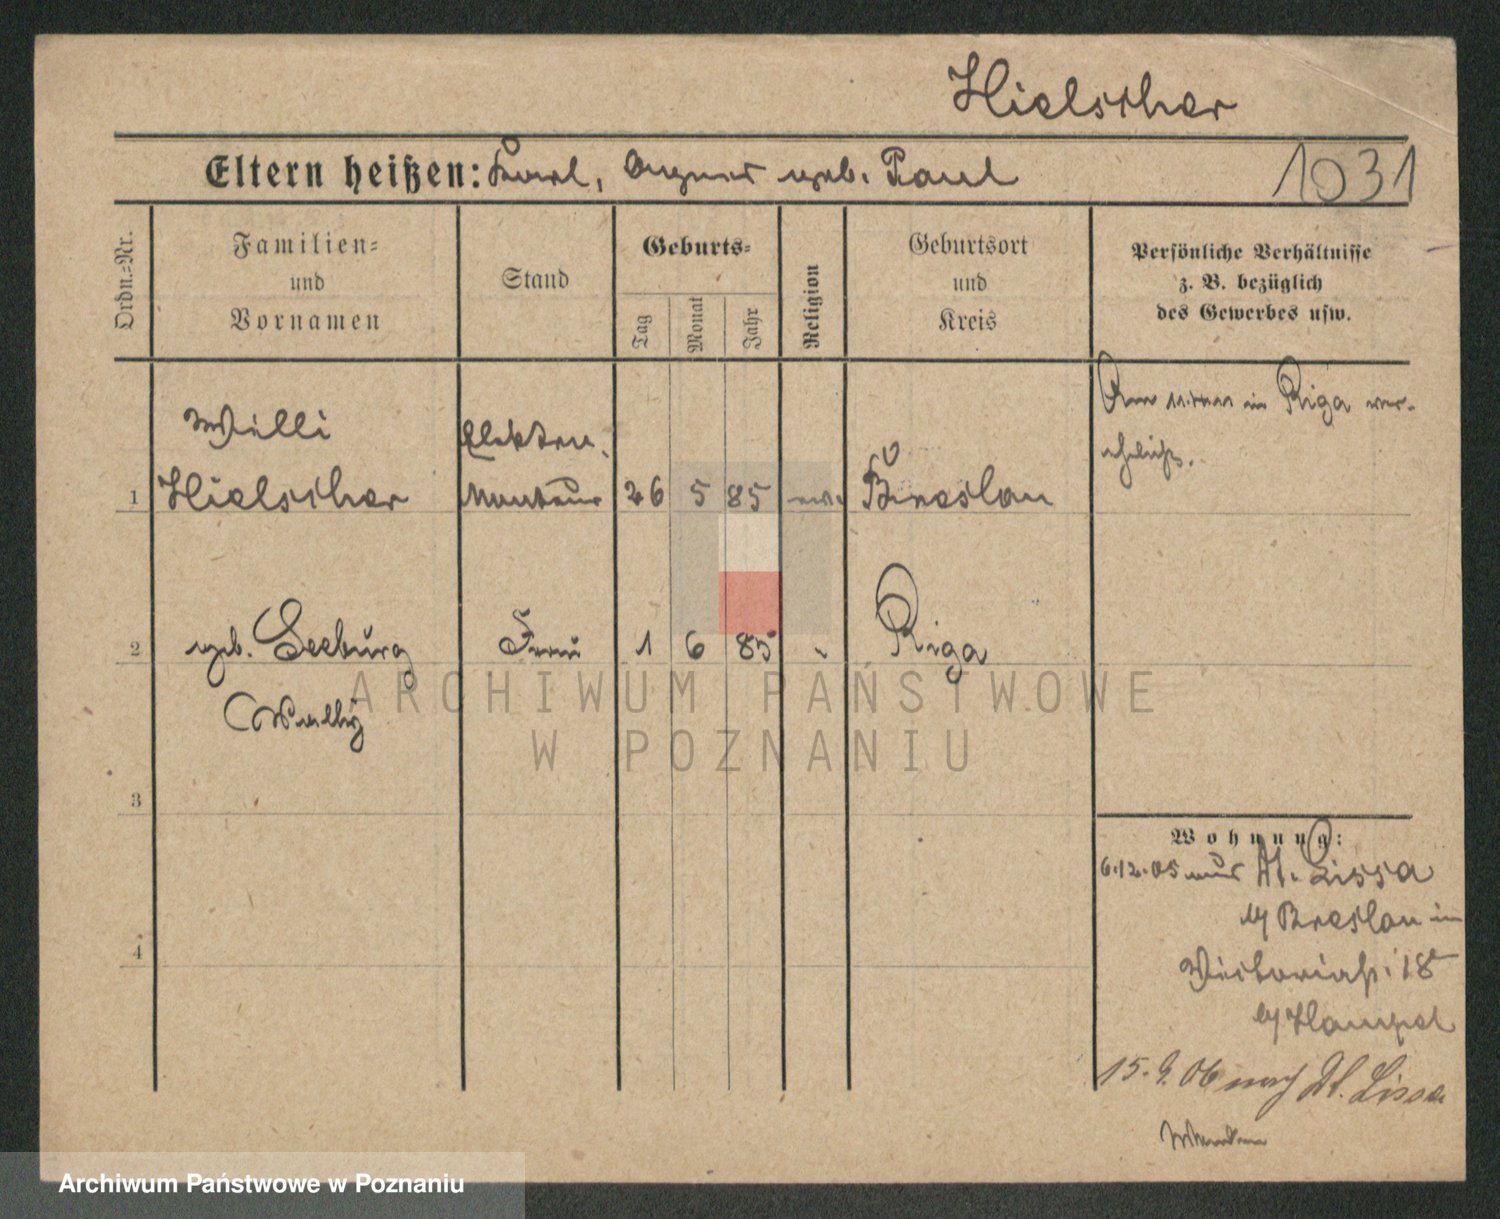 Hielscher
Eltern heißen: Karl, August geb. Paul
1031
Ordn.=Nr.
Familien=
und
Vornamen
Stand
Geburts=
Tag
Monat
Jahr
Religion
Geburtsort
und
Kreis
Persönliche Verhältnisse
z. B. bezüglich
des Gewerbes usw.
Willi
Elektro
in Riga ver-
ehelicht.
1 Hielscher Monteur 26 5 85 ev. Breslau
2 geb. Seeburg Frau 1 6 85 " Riga
Wally
ARCHIWUM PAŃSTWOWE
W POZNANIU
3
Wohnung:
6.12.05 aus Dt. Lissa
b/ Breslau in
4
Victoriastr. 18
b/ Hampel
15.9.06 nach Dt. Lissa
Archiwum Państwowe w Poznaniu